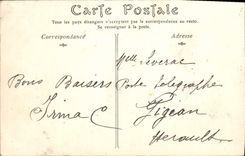 Carte Postale
Tous les pays étrangers n'acceptent pas la correspondance au recto.
Se renseigner à la poste.
Correspondance
Adresse
Mlle Leverac
Bons Baisers
Poste télégraphe
Irma C
Gigean
Herault